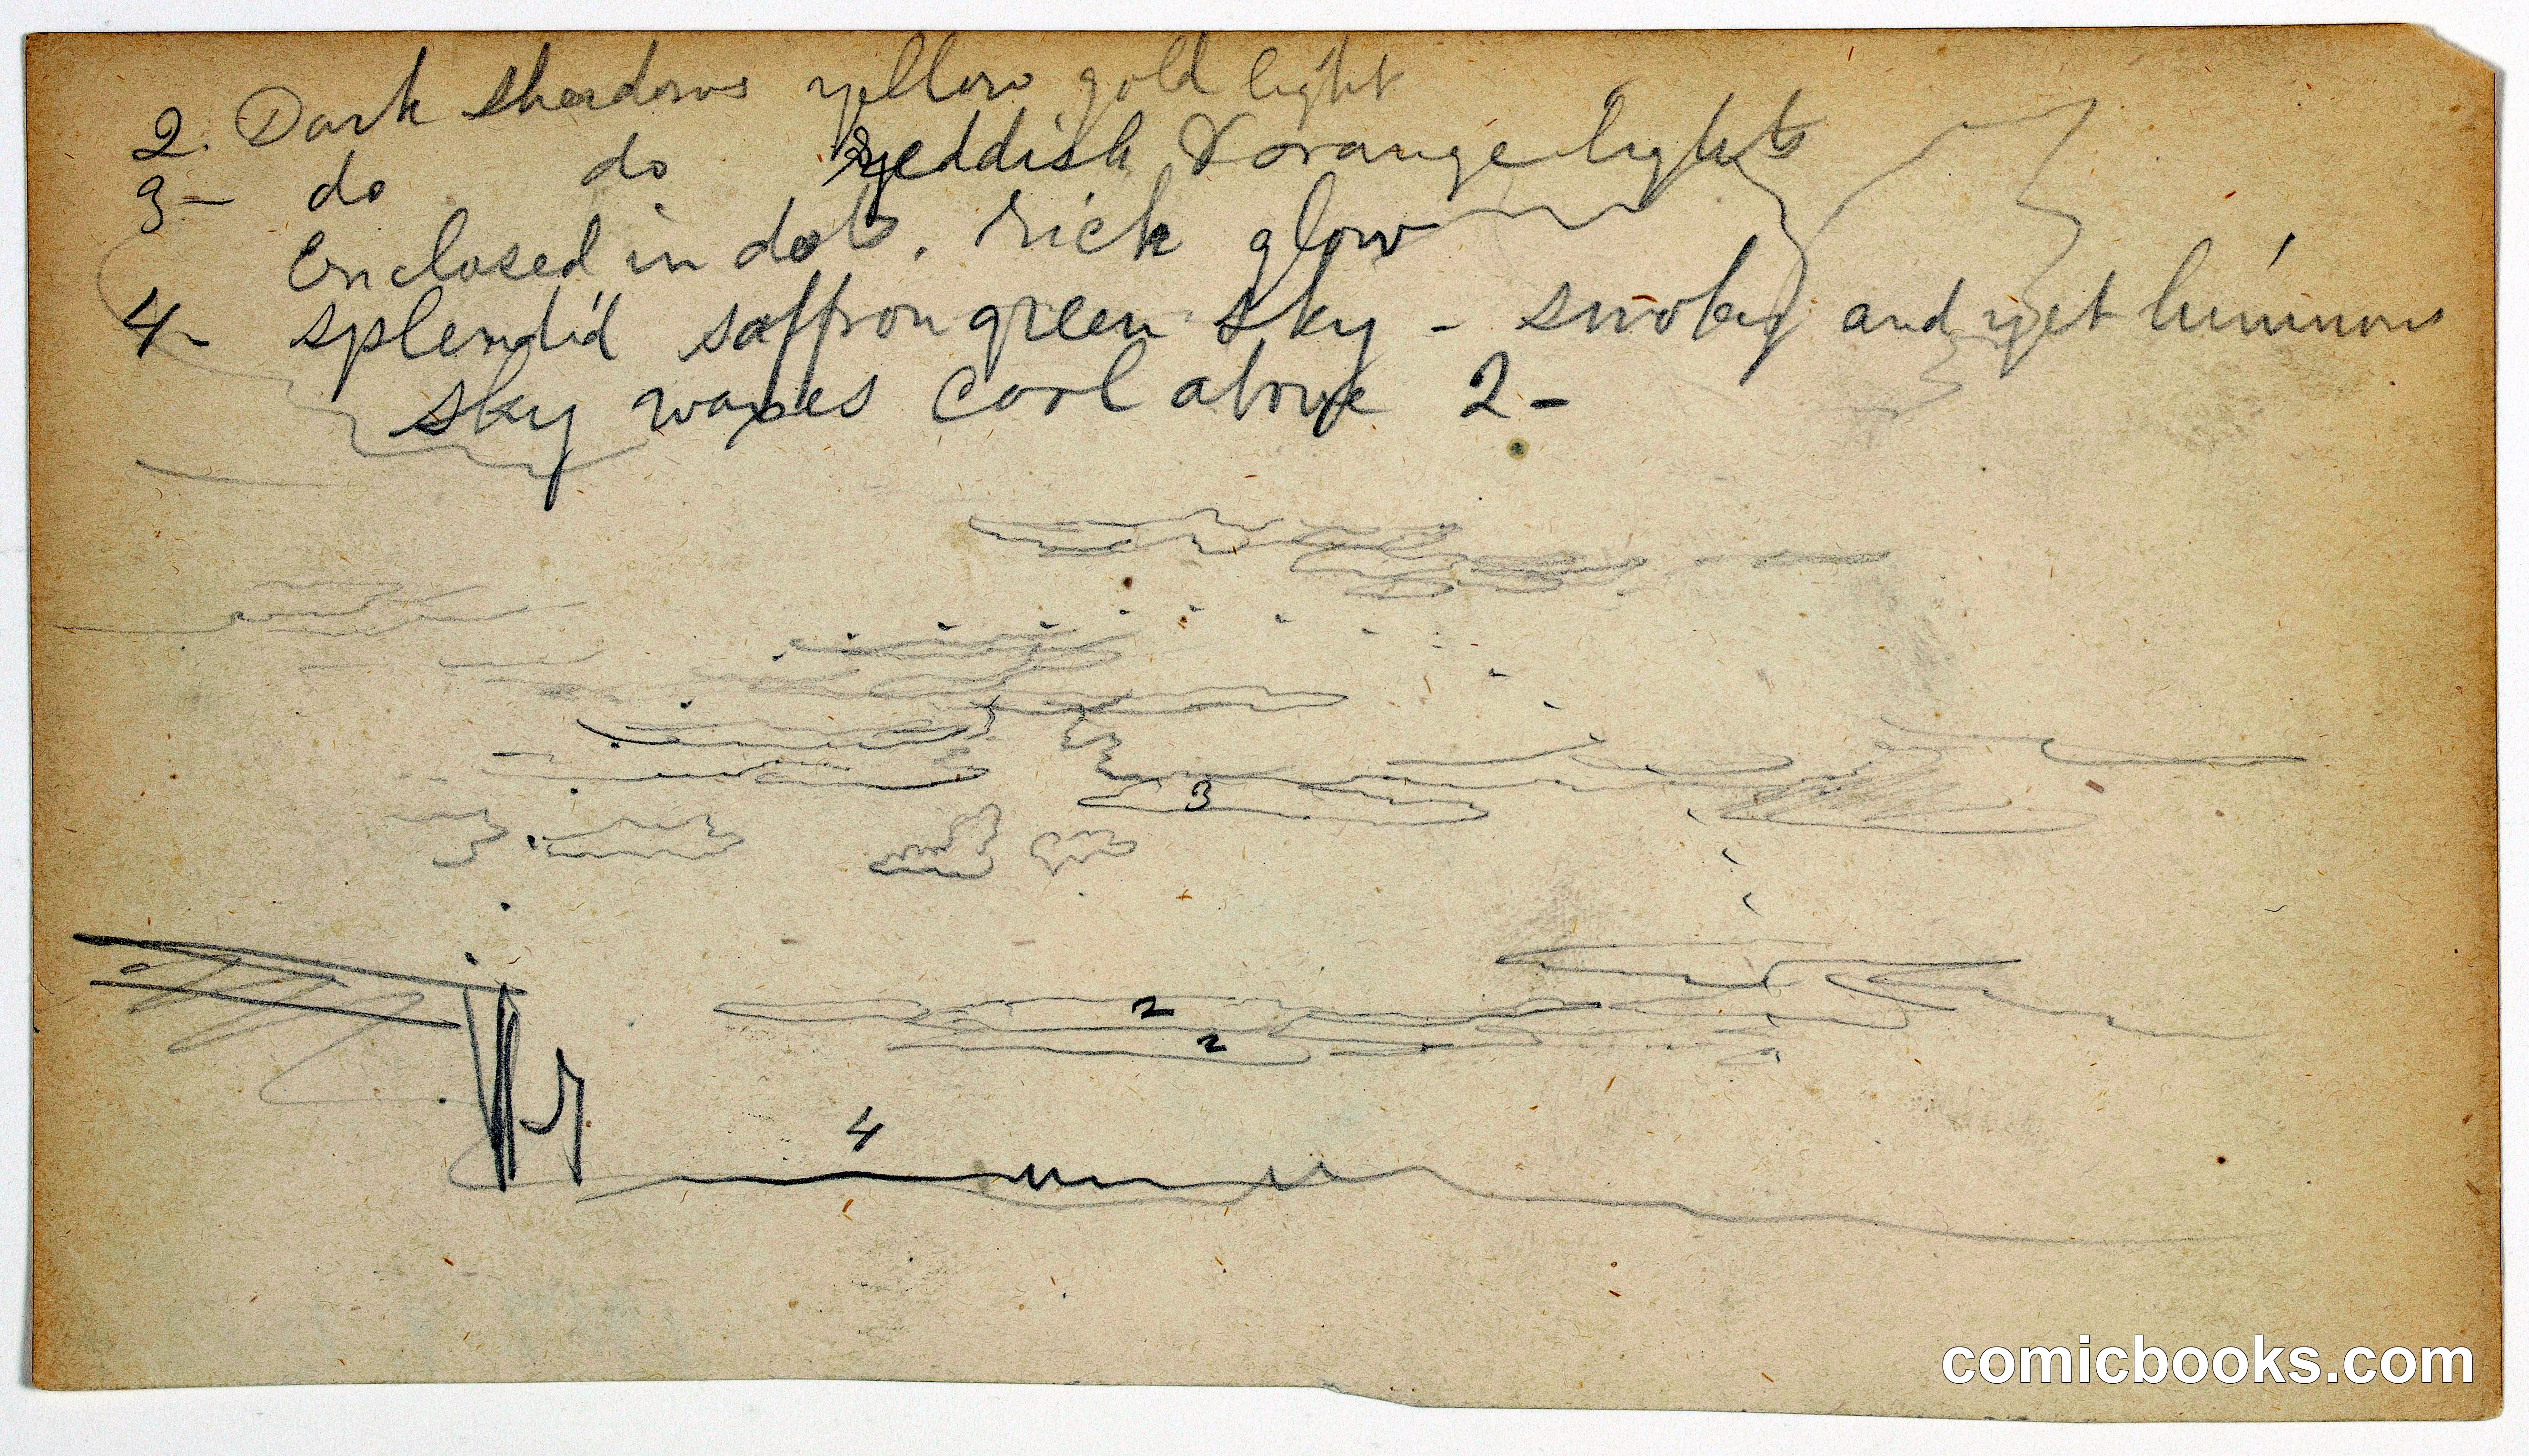 2. Dark shadows yellow gold light
3- do do reddish & orange lights
enclosed in dots. rich glow
4- splendid saffron green sky - smoky and yet luminous
sky waxes cool above 2-
3
2
2
4
comicbooks.com